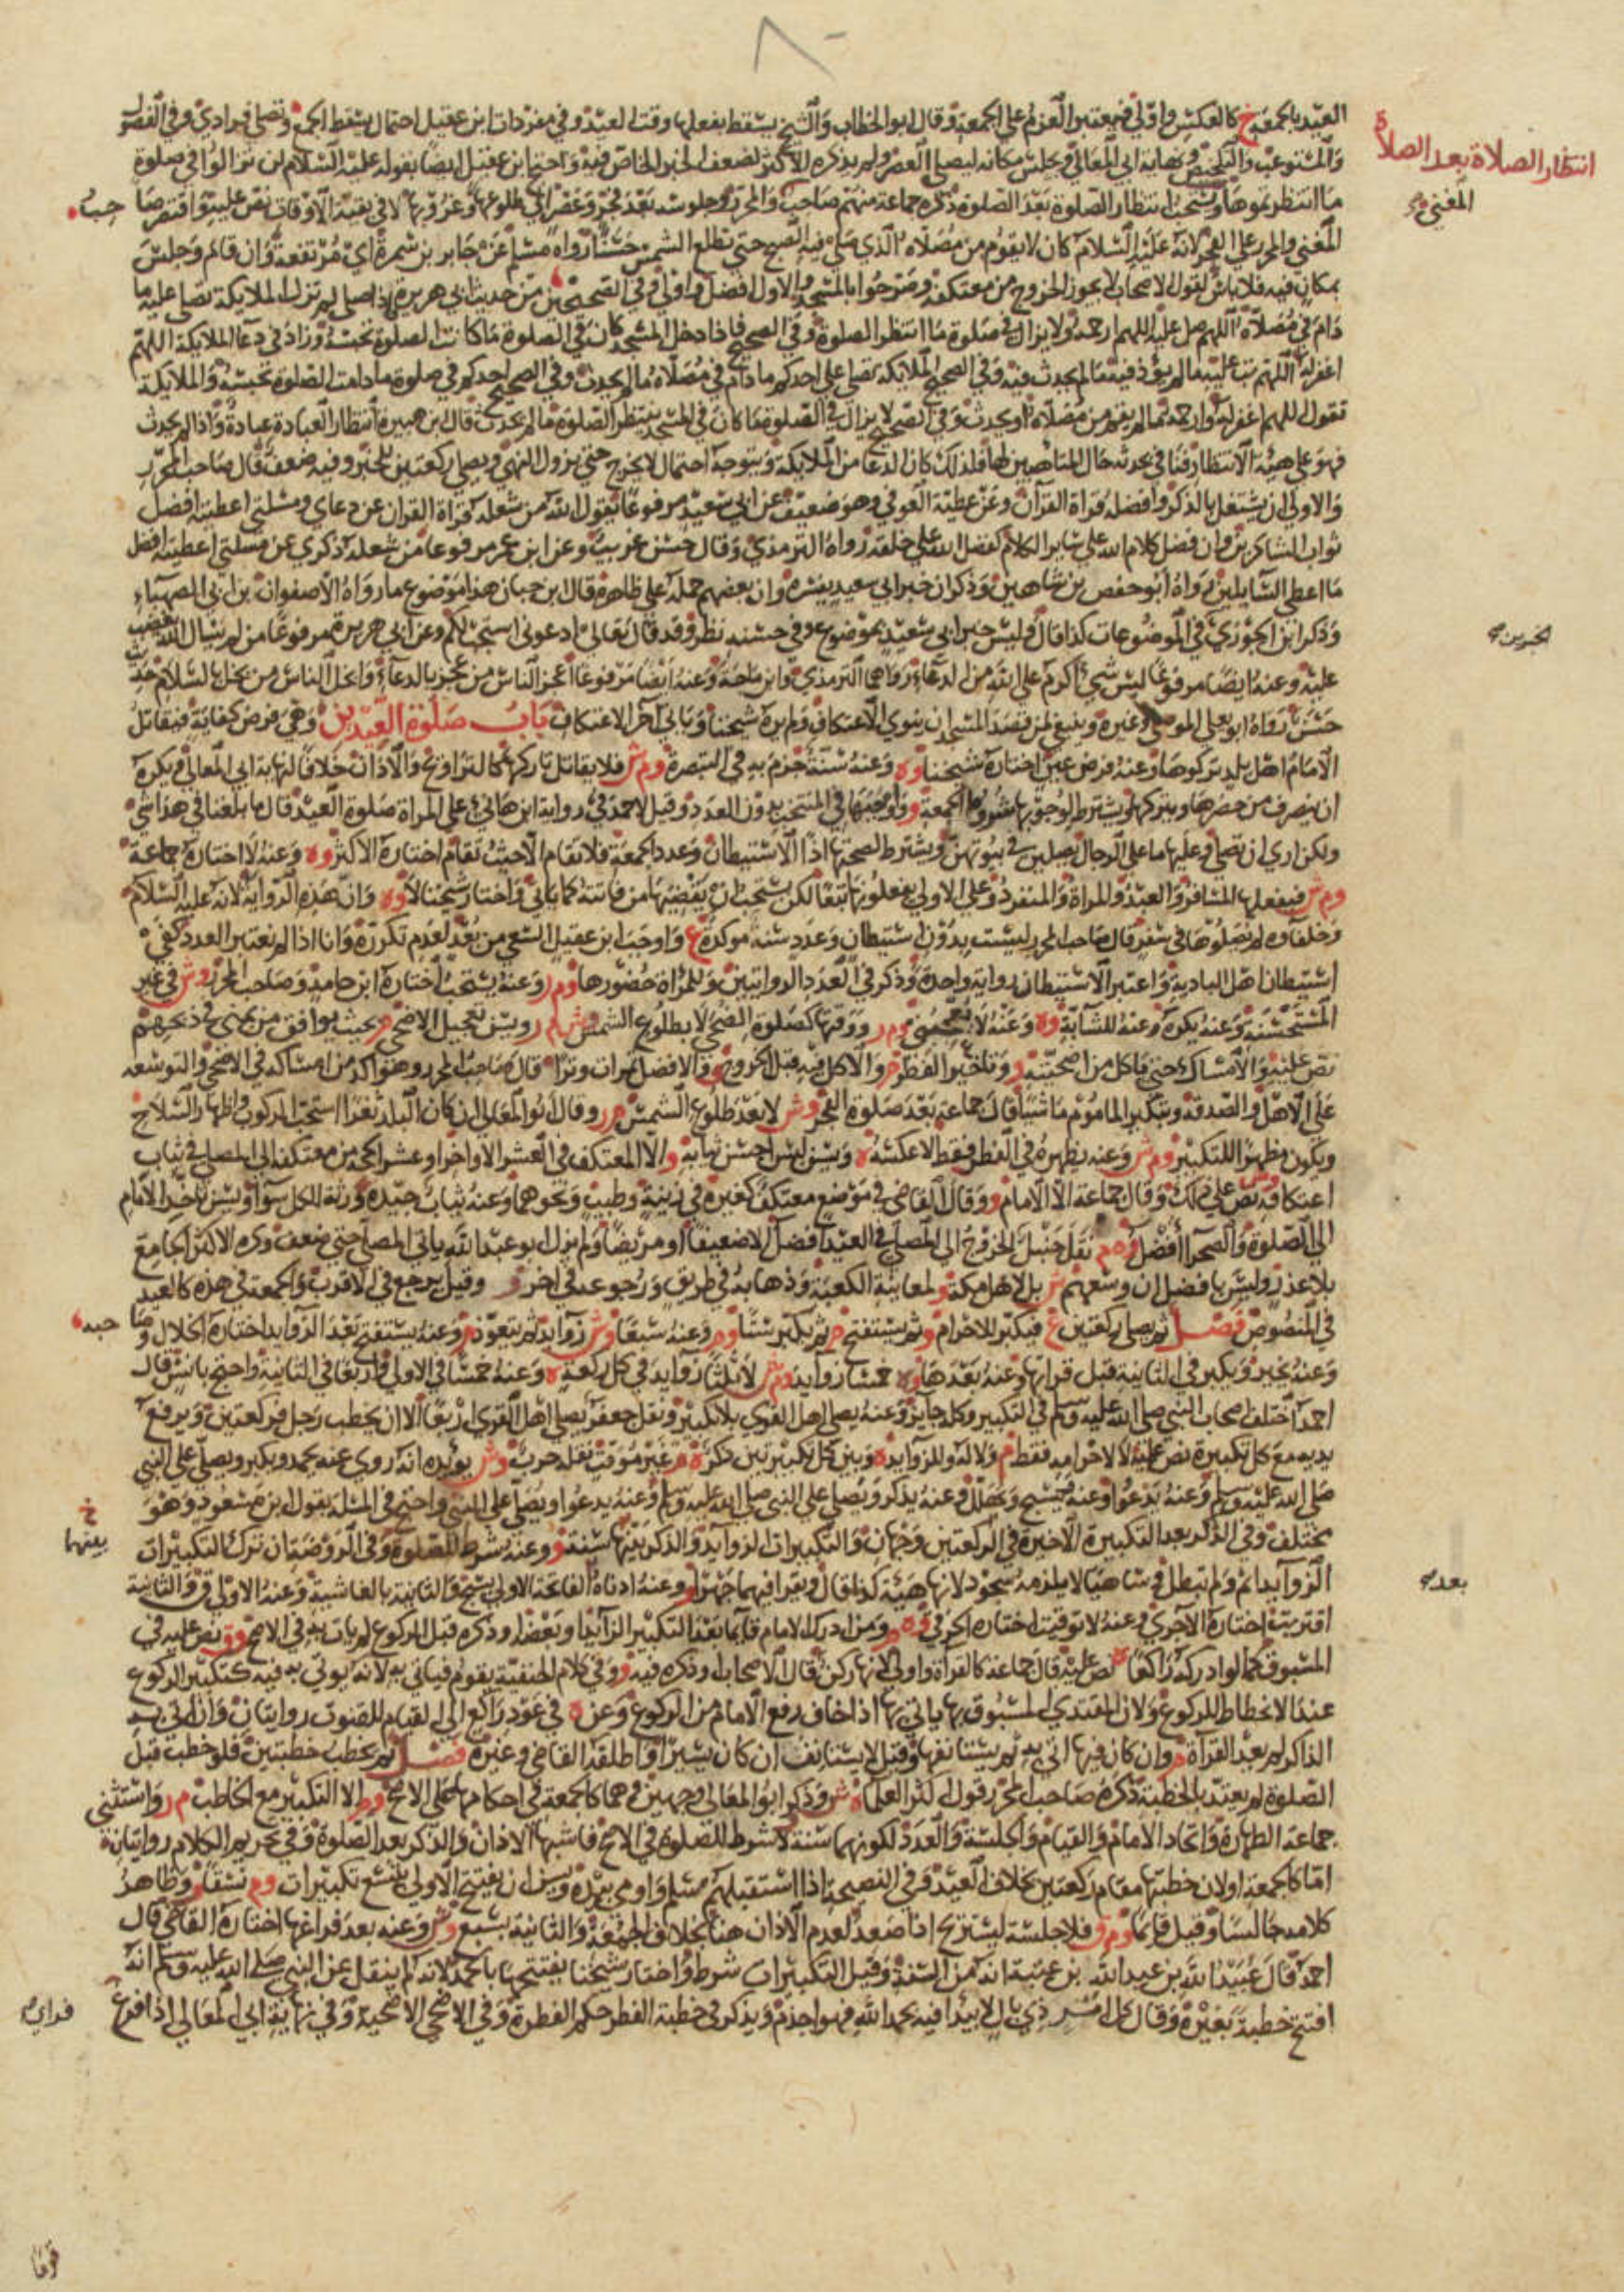 انتظار الصلاة بعد الصلاة
المغني
العيد بالجمعة ع كالعكس واولى فيعتبر العزم على الجمعة وقال ابو الخطاب والشيخ يسقط بفعلها وقت العيد وفي مفردات ابن عقيل احتمال يسقط الجمع وتصلى فرادى وفي الفصول
والمستوعب والتلخيص ونهاية ابي المعالي وجلس مكانه ليصلي العصر ولم يذكره الاكثر لضعف الخبر الخاص فيه واحتج ابن عقيل ايضا بقوله عليه السلام لن تزالوا في صلوة
ما انتظرتموها ويستحب انتظار الصلوة بعد الصلوة ذكره جماعة منهم صاحب والمحرر وجلوسه بعد فجر وعصر الى طلوعها وغروبها لا في بقية الاوقات نص عليه واقتصر صا حب
المغني والمحرر على الفجر لانه عليه السلام كان لا يقوم من مصلاه الذي صلى فيه الصبح حتى تطلع الشمس حسنا رواه مسلم عن جابر بن سمرة اي مرتفعة وان قام وجلس
بمكان فيه فلا باس لقول الاصحاب لا يجوز الخروج من معتكفه وصرحوا بالمسجد والاول افضل واولى وفي الصحيحين من حديث ابي هريرة اذا صلى لم تزل الملايكة تصلي عليه ما
دام في مصلاه اللهم صل عليه اللهم ارحمه ولا يزال في صلوة ما انتظر الصلوة وفي الصحيح فاذا دخل المسجد كان في الصلوة ما كانت الصلوة تحبسه وزاد في دعا الملايكة اللهم
اغفر له اللهم تب عليه ما لم يؤذ فيه ما لم يحدث فيه وفي الصحيح الملايكة تصلي على احدكم ما دام في مصلاه ما لم يحدث وفي الصحيح احدكم في صلوة ما دامت الصلوة تحبسه والملايكة
تقول اللهم اغفر له وارحمه ما لم يقم من مصلاه او يحدث وفي الصحيح لا يزال في الصلوة ما كان في المسجد ينتظر الصلوة ما لم يحدث قال ابن هبيرة انتظار العبادة عبادة واذا لم يحدث
فهو على هيئة الانتظار
والاولى ان يشتغل بالذكر وافضله قراة القرآن وعن عطية العوفي وهو ضعيف عن ابي سعيد مرفوعا يقول الله من شغله قراة القران عن دعاي ومسلتي اعطيته افضل
ثواب الشاكرين وان فضل كلام الله على ساير الكلام كفضل الله على خلقه رواه الترمذي وقال حسن غريب وعن ابن عمر مرفوعا من شغله ذكري عن مسلتي اعطيته افضل
ما اعطي السايلين رواه ابو حفص بن شاهين وذكر ان خبر ابي سعيد يفسره وان بعضهم حمله على ظاهره قال ابن حبان هذا موضوع ما رواه الا صفوان بن ابي الصهباء
وذكر ابن الجوزي في الموضوعات كذا قال وليس خبر ابي سعيد بموضوع وفي حسنه نظر وقد قال تعالى ادعوني استجب لكم وعن ابي هريرة مرفوعا من لم يسال الله يغضب
عليه وعنه ايضا مرفوعا ليس شيء اكرم على الله من الدعاء رواهما الترمذي وابن ماجة وعنه ايضا مرفوعا اعجز الناس من عجز بالدعاء وابخل الناس من بخل بالسلام حديث
حسن رواه ابو يعلى الموصلي وغيره وينبغي لمن قصد المسجد ان ينوي الاعتكاف ولم يره شيخنا وياتي آخر الاعتكاف باب صلوة العيدين وهي فرض كفاية فيقاتل
الامام اهل بلد تركوها وعنه فرض عين اختاره شيخنا وه وعنه سنة جزم به في التبصرة وم ش فلا يقاتل تاركها كالتراويح والاذان خلافا لنهاية ابي المعالي ويكره
ان ينصرف من حضرها ويتركها ويشترط لوجوبها شروط الجمعة و واوجبها في المنتخب بدون العدد وقيل لاحمد في رواية ابن هاني على المراة صلوة العيد قال ما بلغنا في هذا شي
ولكن ارى ان تصلي وعليها ما على الرجال يصلين في بيوتهن ويشترط لصحتها اذا الاستيطان وعدد الجمعة فلا تقام الا حيث تقام اختاره الاكثر وه وعنه لا اختاره جماعة
وم ش فيفعلها المسافر والعبد والمراة والمنفرد وعلى الاولى يفعلونها تبعا لكن يستحب ان يقضيها من فاتته كما ياتي واختار شيخنا لا وه وان هذه الرواية لانه عليه السلام
وخلفاوه لم يصلوها في سفر قال صاحب المحرر ليست بدون استيطان وعدد سنة موكدة ع واوجب ابن عقيل السعي من بعد لعدم تكرره وانا اذا لم نعتبر العدد كفي
استيطان اهل البادية واعتبر الاستيطان رواية واحدة وذكر في العدد الروايتين وللمراة حضورها وم ر وعنه يستحب اختاره ابن حامد وصاحب المحرر وش في غير
المستحسنة وعنه يكره وعنه للشابة وه وعنه لا يعجبني وم ر ووقتها كصلوة الضحى لا بطلوع الشمس ويسن تعجيل الاضحى بحيث يوافق من بمنى في ذبحهم
نص عليه والامساك حتى ياكل من اضحيته و وتاخير الفطر و والاكل فيه قبل الخروج والافضل تمرات وترا قال صاحب المحرر وهو اكد من امساكه في الاضحى والتوسعة
على الاهل والصدقة وتبكير الماموم ماشيا قال جماعة بعد صلوة الفجر وش لا بعد طلوع الشمس وقال ابو المعالي ان كان البلد ثغرا استحب الركوب واظهار السلاح
ويكون مظهرا للتكبير وم ش وعنه يظهره في الفطر فقط لا عكسه ويسن لبس احسن ثيابه والا المعتكف في العشر الاواخر او عشر الحجة من معتكفه الى المصلى في ثياب
اعتكافه نص على ذلك وقال جماعة الا الامام و وقال القاضي في موضع معتكف كغيره في زينة وطيب ونحوهما وعنه ثياب جيدة ورثة الكل سوا ويسن تاخر الامام
الى الصلوة والصحرا افضل وه م نقل حنبل الخروج الى المصلى في العيد افضل الا ضعيفا او مريضا ولم يزل ابو عبد الله ياتي المصلى حتى ضعف وكره الاكثر الجامع
بلا عذر وليس بافضل ان وسعهم ش بل لاهل مكة ولمعاينة الكعبة وذهابه في طريق ورجوعه في اخر و وقيل يرجع في الاقرب والجمعة في هذه كالعيد
في المنصوص فصل ثم يصلي ركعتين ع فيكبر للاحرام و ثم يستفتح ثم يكبر ستا وم وعنه سبعا وش زوايد ثم يتعوذ و وعنه يستفتح بعد الزوايد اختاره الخلال وصا حبه
وعنه يخير ويكبر في الثانية قبل قراتها وعنه بعدها وه خمسا زوايد وم ش لا ثلثا زوايد في كل ركعة وعنه خمسا في الاولى واربعا في الثانية واحتج بانس قال
احمد اختلف اصحاب النبي صلى الله عليه وسلم في التكبير وكله جايز وعنه يصلي اهل القرى بلا تكبير ونقل جعفر يصلي اهل القرى اربعا الا ان يخطب رجل فركعتين ويرفع
يديه مع كل تكبيرة نص عليه لا لاحرامه فقط م وبين كل تكبيرتين ذكر غير موقت نقله حرب وش يؤيده انه روي عنه يحمد ويكبر ويصلي على النبي
صلى الله عليه وسلم وعنه يدعوا وعنه يسبح ويهلل وعنه يذكر ويصلي على النبي صلى الله عليه وسلم وعنه يدعوا ويصلي على النبي واحتج في المسلة بقول ابن مسعود وهو
مختلف وفي الذكر بعد التكبيرة الاخيرة في الركعتين وجهان والتكبيرات الزوايد والذكر بينها سنة و وعنه شرط للصلوة وفي الروضة ان ترك التكبيرات
الزوايد اثم ولم تبطل وساهيا لا يلزمه سجود لانها هيئة كذا قال ويقرا فيهما جهرا و وعنه ادناه الفاتحة الاولى بسبح والثانية بالغاشية وعنه الاولى ق والثانية
اقتربت اختاره الآجري وعنه لا توقيت اختاره الخرقي وه م ومن ادرك الامام قايما بعد التكبير الزايد او بعضه او ذكره قبل الركوع لم يات به في الاصح وق نص عليه في
المسبوق كما لو ادركه راكعا نص عليه قال جماعة كالقراة واولى لانها ركن قال الاصحاب او ذكره فيه و وفي كلام الحنفية يقوم فياتي به لانه يوتى به فيه كتكبير الركوع
عند الانحطاط للركوع ولان المقتدي المسبوق بها ياتي بها اذا خاف رفع الامام من الركوع وعن ه في عود راكع الى القيام للقنوت روايتان وان اتى به
الذاكر لم يعد القرآة وان كان فيها اتى به ثم يستانفها وقيل لا يستانف ان كان يسيرا واطلقه القاضي وغيره فصل ثم يخطب خطبتين فلو خطب قبل
الصلوة لم يعتد بالخطبة ذكره صاحب المحرر قول اكثر العلماء ش وذكر ابو المعالي وجهين وهما كالجمعة في احكامها على الاصح الا التكبير مع الخاطب م ر واستثنى
جماعة الطهارة واتحاد الامام والقيام والجلسة والعدد لكونهما سنة لا شرط للصلوة في الاصح فاشبها الاذان والذكر بعد الصلوة وفي تحريم الكلام روايتان
اما كالجمعة او لان خطبتها مقام ركعتين بخلاف العيد وفي النصيحة اذا استقبلهم سلم واومى بيده ويسن ان يفتتح الاولى بتسع تكبيرات وم نسقا وظاهر
كلامه جالسا وقيل قايما وم ق فلا جلسة ليستريح اذا صعد لعدم الاذان هنا بخلاف الجمعة والثانية بسبع وش وعنه بعد فراغها اختاره القاضي قال
احمد قال عبيد الله بن عبد الله بن عتبة انه من السنة وقيل التكبيرات شرط واختار شيخنا يفتتحها بالحمد لانه لم ينقل عن النبي صلى الله عليه وسلم انه
افتتح خطبة بغيره وقال كل امر ذي بال لا يبدا فيه بحمد الله فهو اجذم ويذكر في خطبة الفطر حكم الفطرة وفي الاضحى الاضحية وفي نهاية ابي المعالي اذا فرغ
بينهما
بعد
فراي